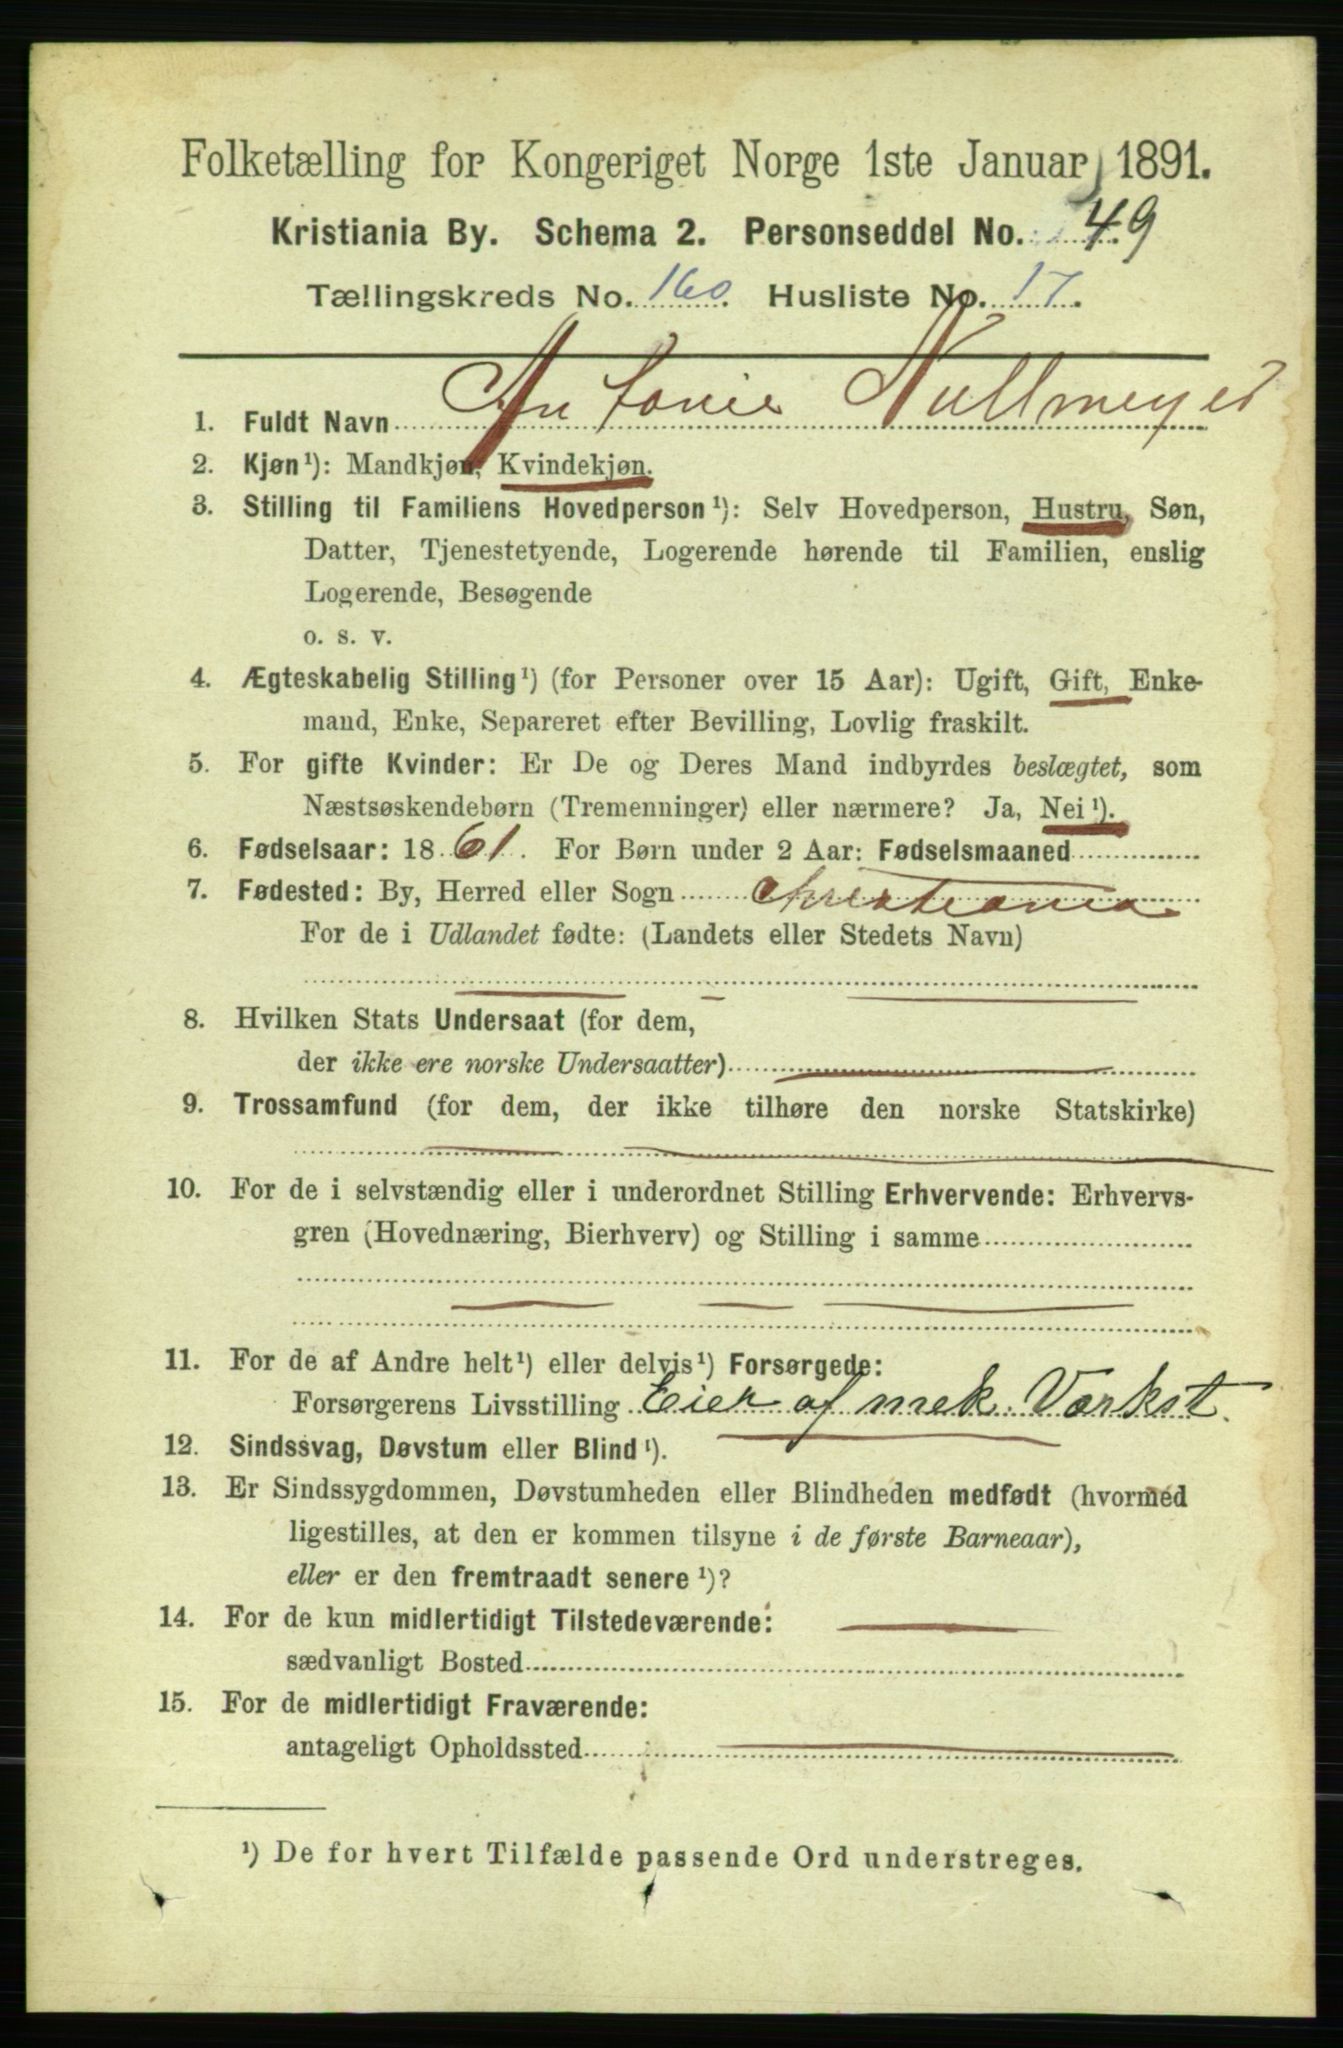 Folketælling for Kongeriget Norge 1ste Januar 1891.
Kristiania By. Schema 2. Personseddel No. 49
Tællingskreds No. 160. Husliste No. 17.
1. Fuldt Navn Antonie Nullmeyer
2. Kjøn¹): Mandkjøn, Kvindekjøn.
3. Stilling til Familiens Hovedperson¹): Selv Hovedperson, Hustru, Søn,
Datter, Tjenestetyende, Logerende hørende til Familien, enslig
Logerende, Besøgende
o. s. v.
4. Ægteskabelig Stilling¹) (for Personer over 15 Aar): Ugift, Gift, Enke-
mand, Enke, Separeret efter Bevilling, Lovlig fraskilt.
5. For gifte Kvinder: Er De og Deres Mand indbyrdes beslægtet, som
Næstsøskendebørn (Tremenninger) eller nærmere? Ja, Nei¹).
6. Fødselsaar: 1861. For Børn under 2 Aar: Fødselsmaaned
7. Fødested: By, Herred eller Sogn Christiania
For de i Udlandet fødte: (Landets eller Stedets Navn)
8. Hvilken Stats Undersaat (for dem,
der ikke ere norske Undersaatter)
9. Trossamfund (for dem, der ikke tilhøre den norske Statskirke)
10. For de i selvstændig eller i underordnet Stilling Erhvervende: Erhvervs-
gren (Hovednæring, Bierhverv) og Stilling i samme
11. For de af Andre helt¹) eller delvis¹) Forsørgede:
Forsørgerens Livsstilling Eier af mek. Værkst.
12. Sindssvag, Døvstum eller Blind¹).
13. Er Sindssygdommen, Døvstumheden eller Blindheden medfødt (hvormed
ligestilles, at den er kommen tilsyne i de første Barneaar),
eller er den fremtraadt senere¹)?
14. For de kun midlertidigt Tilstedeværende:
sædvanligt Bosted
15. For de midlertidigt Fraværende:
antageligt Opholdssted
¹) De for hvert Tilfælde passende Ord understreges.